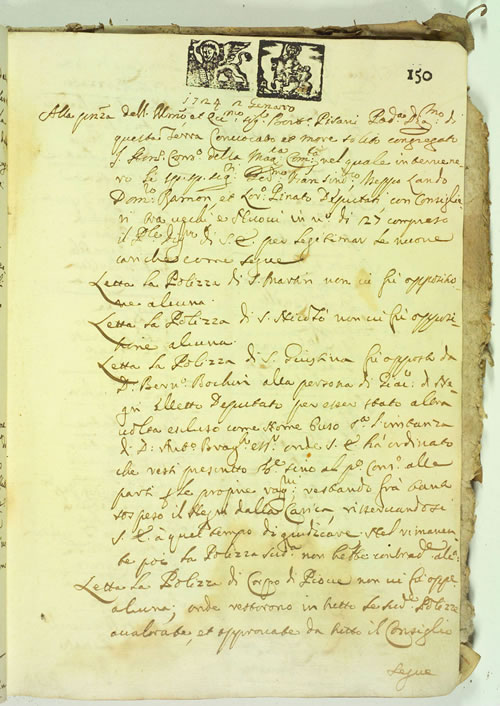 150
1724 2 Genaro
Alla pnza dell. Illmo et Ecc.mo Sigr Pisani Podtà Dig.mo di
questa Terra Convocato et more solito congregato
il Consº della Mag.ca Com.tà nel quale intervene
ro li Neppo Lando
Dom.º Ramon et Lor.º Pinato Deputati con Consiglie
ri Vecchi e Nuovi in nº di 27 compreso
il di S. E. per legitimar le nuove
cariche come segue
Letta la Polizza di S. Martin non vi fù oppositio
ne alcuna.
Letta la Polizza di S. Nicolò non vi fù opposi
tione alcuna.
Letta la Polizza di S. Giustina fù opposto da
D. Bern.º alla persona di Giac.º di Ne
gri Eletto Deputato per esser stato altra
volta escluso come l'instanza
di D. Ant.º onde S. E. hà ordinato
che resti sino al pº Consº alle
parti le proprie rag.ni restando frà tanto
sospeso il Negri dalla Carica, risservandosi
S. E. à quel tempo di giudicare. Nel rimanen
te poi la Polizza sud.ta non hebbe contrad.e alc.ª
Letta la Polizza di Corpo di Piove non vi fù oppe
alcuna; onde restorono in tutto le sud.e Polizze
avalorate, et approvate da tutto il Consiglio
segue